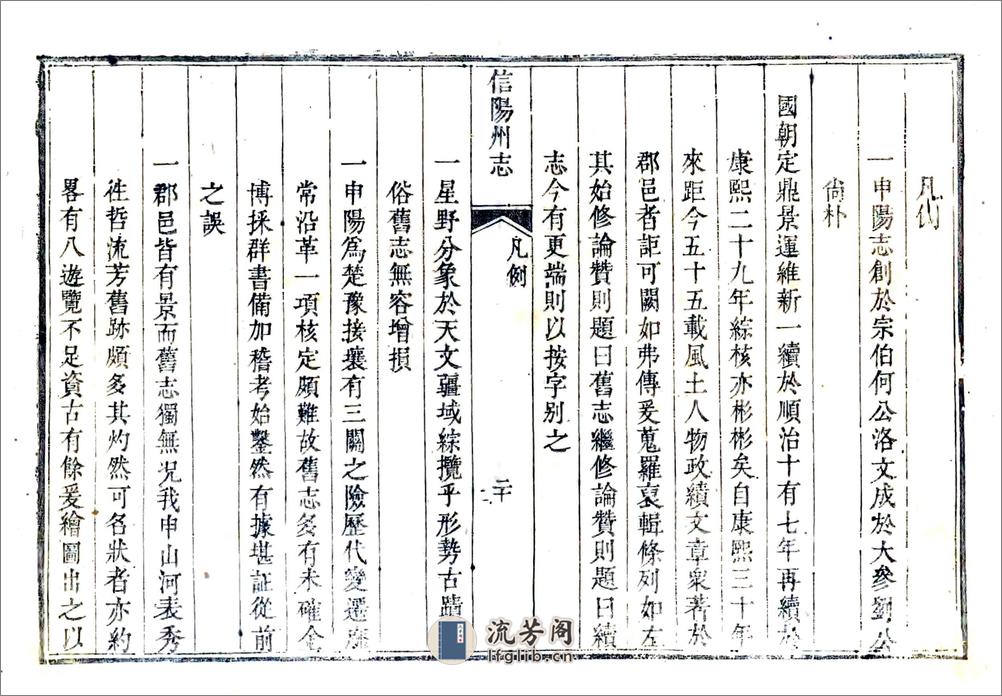 凡例
一申陽志創於宗伯何公洛文成於大參劉公
尙朴
國朝定鼎景運維新一續於順治十有七年再續於
康熙二十九年綜核亦彬彬矣自康熙三十年
來距今五十五載風土人物政績文章衆著於
郡邑者詎可闕如弗傳爰蒐羅裒輯條列如左
其始修論贊則題曰舊志繼修論贊則題曰續
志今有更端則以按字別之
信陽州志
凡例
一星野分象於天文疆域綜攬乎形勢古蹟
俗舊志無容增損
一申陽爲楚豫接壤有三關之險歷代變遷靡
常沿革一項核定頗難故舊志多有未確今
博採群書備加稽考始鑿然有據堪証從前
之誤
一郡邑皆有景而舊志獨無况我申山河表秀
徃哲流芳舊跡頗多其灼然可名狀者亦約
畧有八遊覽不足資古有餘爰繪圖出之以
流芳阁
lfglib.cn